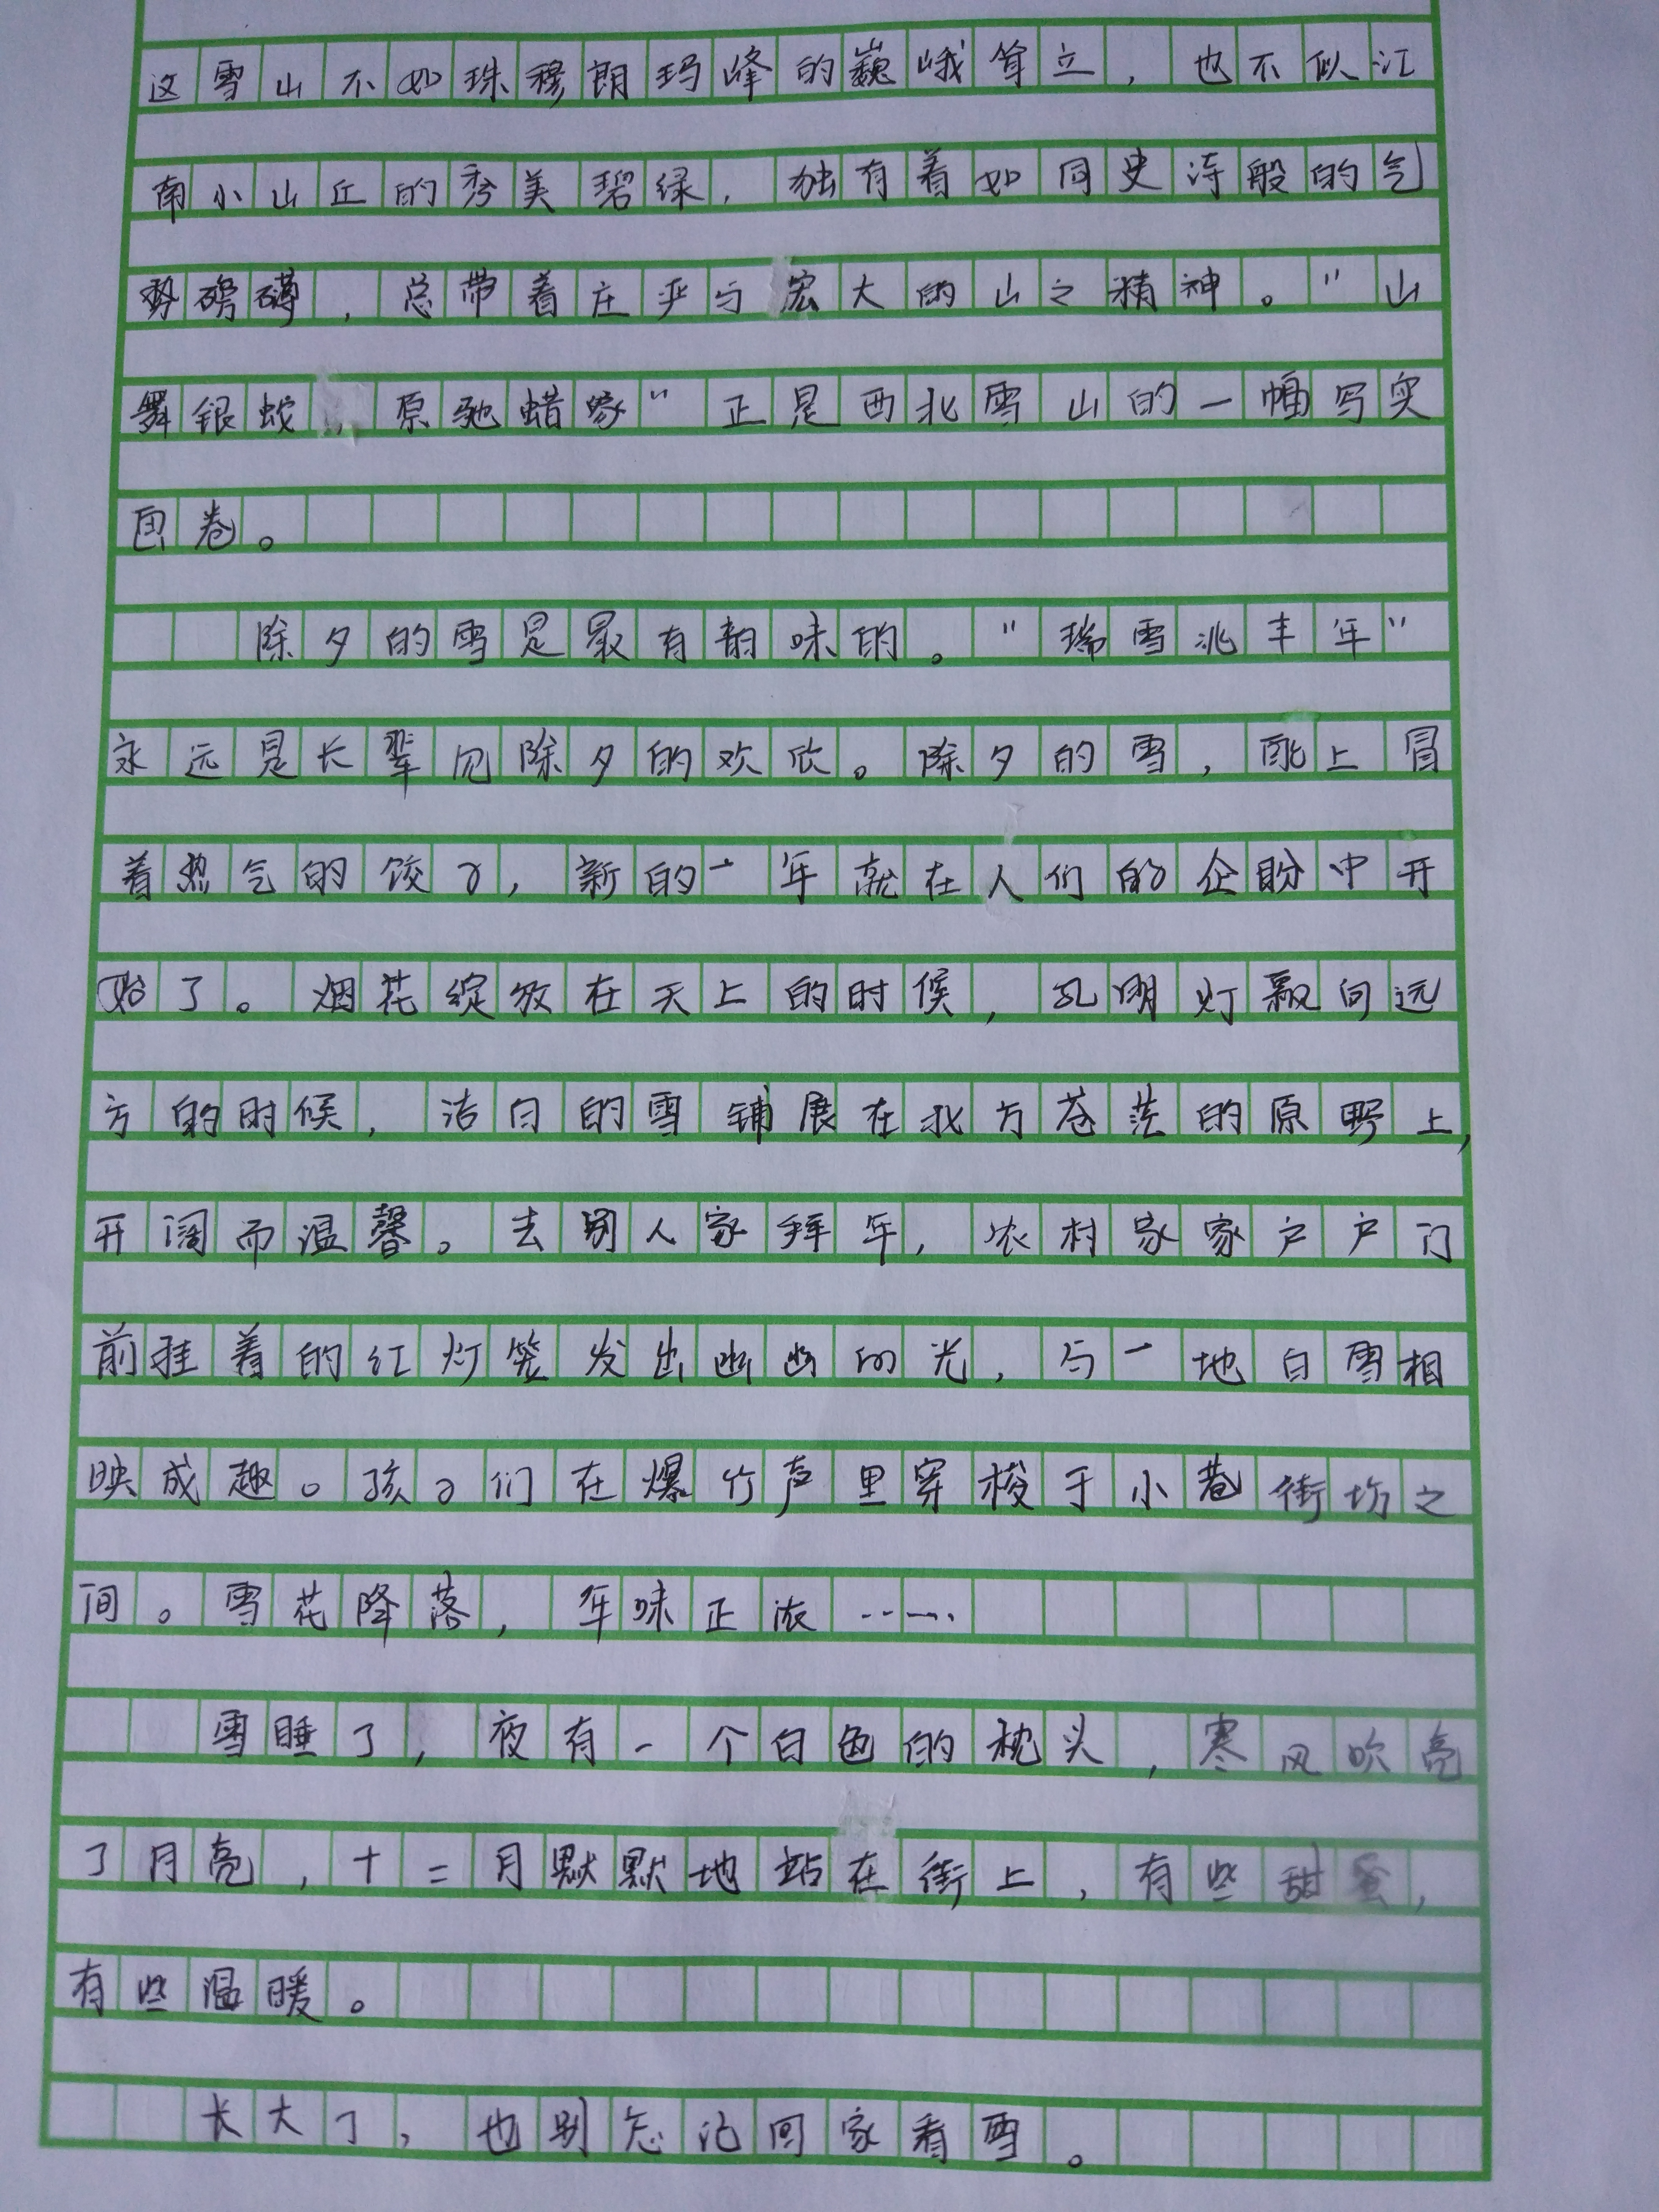 这雪山不如珠穆朗玛峰的巍峨耸立，也不似江
南小山丘的秀美碧绿，独有着如同史诗般的气
势磅礴，总带着庄严与宏大的山之精神。“山
舞银蛇，原驰蜡象”正是西北雪山的一幅写实
画卷。
除夕的雪是最有韵味的。“瑞雪兆丰年”
永远是长辈见除夕的欢欣。除夕的雪，配上冒
着热气的饺子，新的一年就在人们的企盼中开
始了。烟花绽放在天上的时候，孔明灯飘向远
方的时候，洁白的雪铺展在北方苍茫的原野上，
开阔而温馨。去别人家拜年，农村家家户户门
前挂着的红灯笼发出幽幽的光，与一地白雪相
映成趣。孩子们在爆竹声里穿梭于小巷街坊之
间。雪花降落，年味正浓……
雪睡了，夜有一个白色的枕头，寒风吹亮
了月亮，十二月默默地站在街上，有些甜蜜，
有些温暖。
长大了，也别忘记回家看雪。